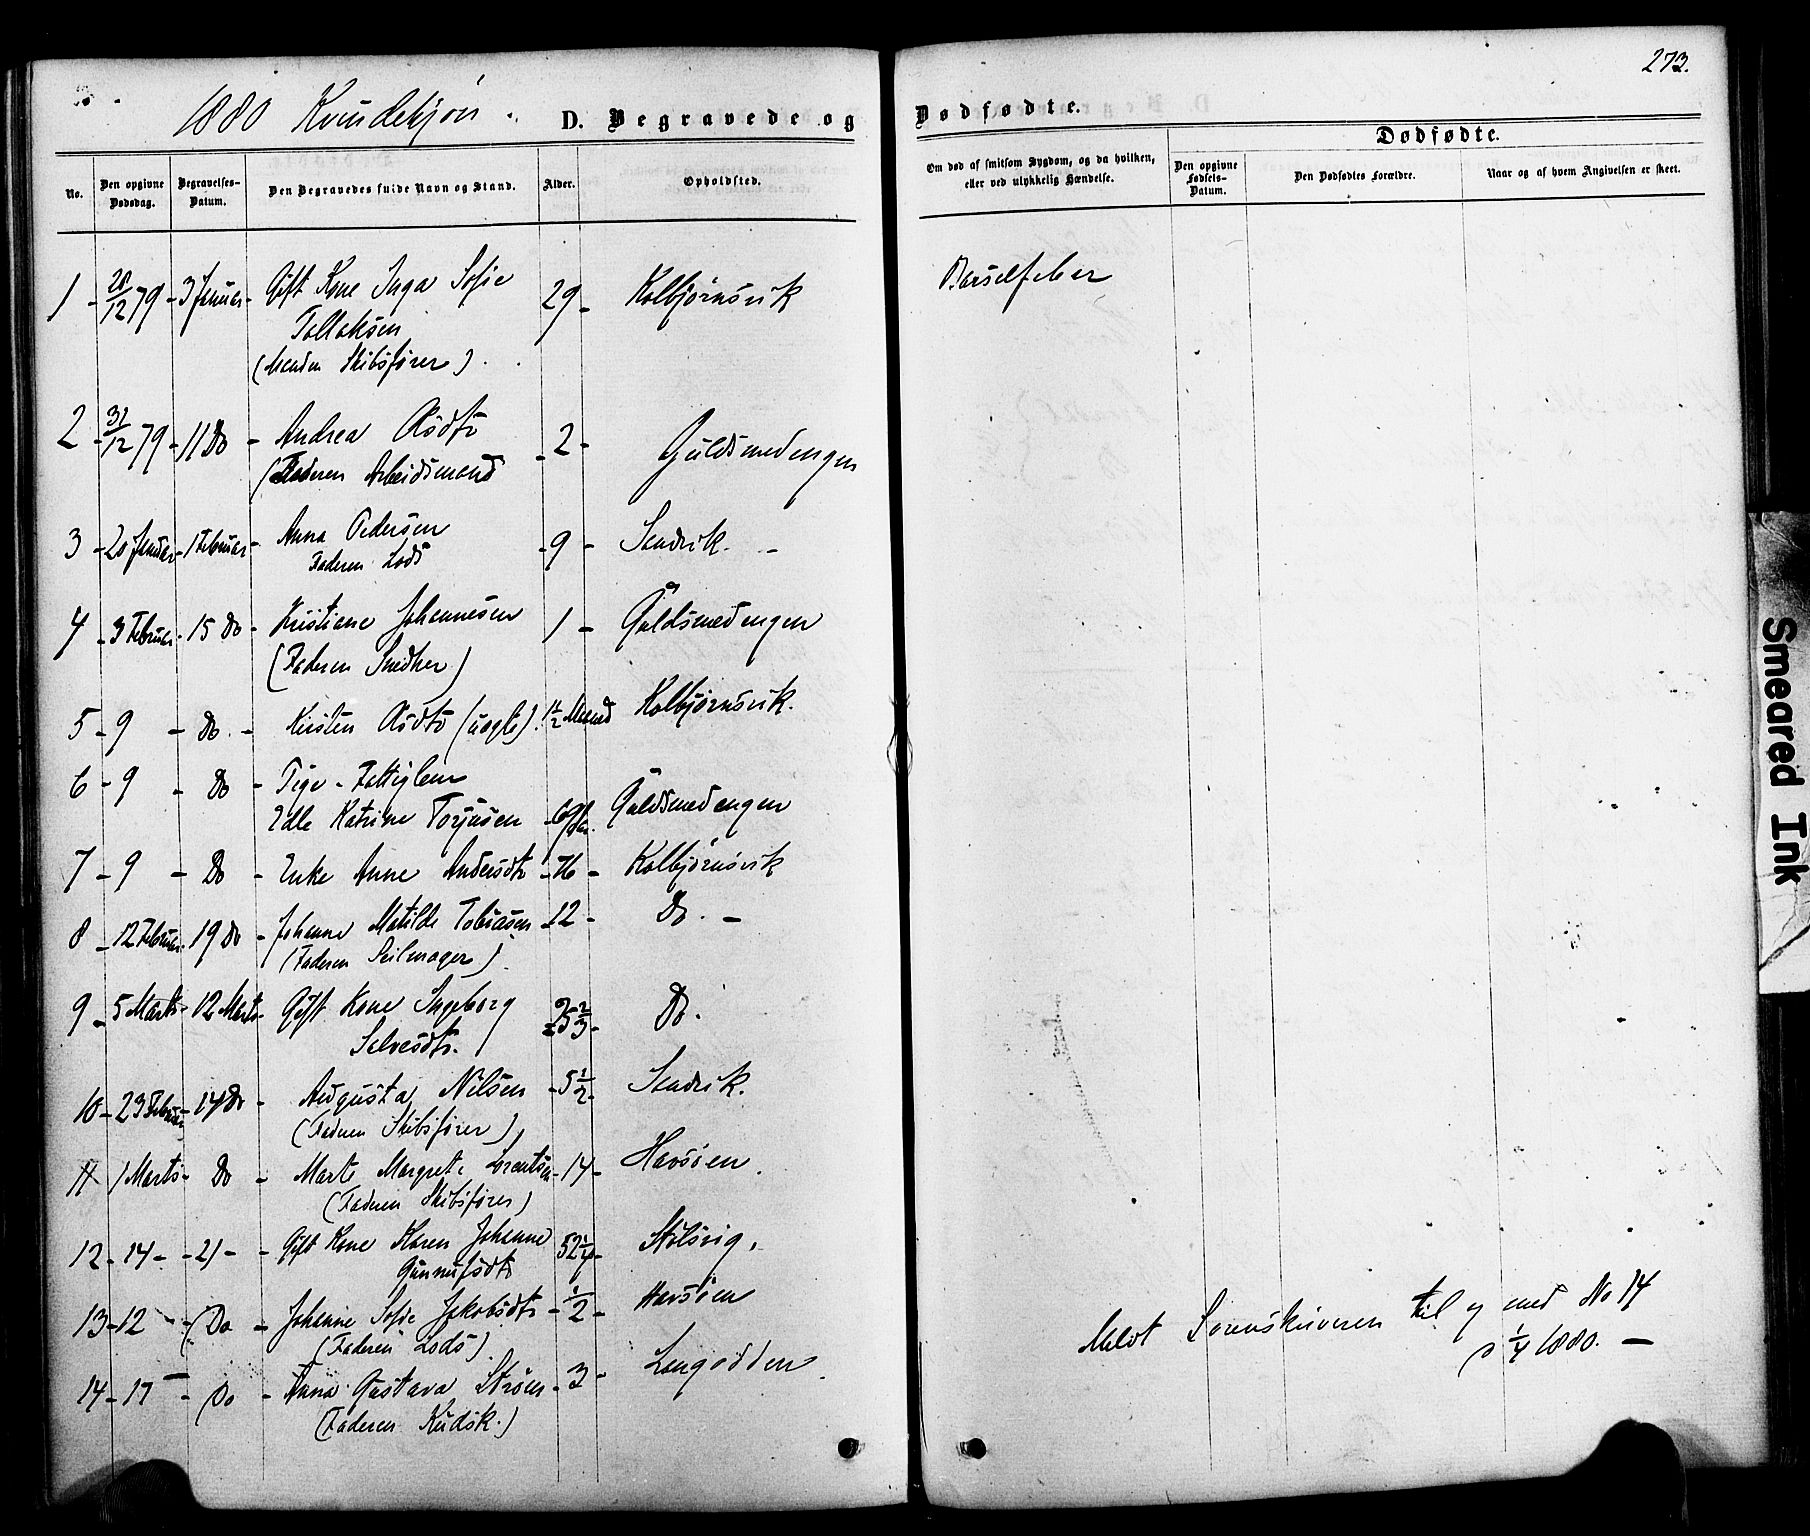 273.
1880 Kvindekjøn.
D. Begravede og Dødfødte.
Dødfødte.
No.
Den opgivne Dødsdag.
Begravelses-Datum.
Den Begravedes fulde Navn og Stand.
Alder.
Opholdsted.
Om død af smitsom Sygdom, og da hvilken, eller ved ulykkelig Hændelse.
Den opgivne Fødsels-Datum.
Den Dødfødtes Forældre.
Naar og af hvem Angivelsen er skeet.
1 - 28/12 79 - 3 Januar - Gift Kone Inga Sofie 29 - Kolbjørnsvik Barselfeber
Tallaksen
(Manden Skibsfører).
2 - 31/12 79 - 11 Do - Andrea Asdtr - 2 - Guldsmedengen
(Faderen Arbeidsmand
3 - 20 Januar - 1 Februar - Anna Pedersen - 9 - Sandvik. -
Faderen Lods
4 - 3 Februar - 15 Do - Kristiane Johannesen 1 - Guldsmedengen
(Faderen Snedker)
5 - 9 - Do. - Kirsten Asdtr (uægte). 1 1/2 Maaned Kolbjørnsvik.
6 - 9 - Do - Pige - Fattiglem
Edle Katrine Torjusen - 69 - Guldsmedengen
7 - 9 - Do - Enke Anne Andersdtr - 76 - Kolbjørnsvik
8 - 12 Februar - 19 Do - Johanne Matilde Tobiasen - 12 - Do. -
(Faderen Seilmager).
9 - 5 Marts - 12 Marts - Gift Kone Ingeborg 25 2/3 - Do.
Salvesdtr.
10 - 23 Februar - 14 Do - Augusta Nilsen - 5 1/2 - Sandvik.
(Faderen Skibsfører)
11 - 1 Marts - Do - Marte Margrete Lorentsen - 14 - Havsøen.
(Faderen Skibsfører)
12 - 14 - - 21 - - Gift Kone Karen Johanne 52 1/4 - Stølsvig.
Gunnufsdtr
13 - 12 - - Do - Johanne Sofie Jakobsdtr - 1/2 - Havsøen
(Faderen Lods)
14 - 17 - - Do - Anna Gustava Strøm - 3 - Langodden.
(Faderen Kudsk.)
Meldt Sorenskriveren til og med No 14
d 1/4 1880. -
Smeared Ink